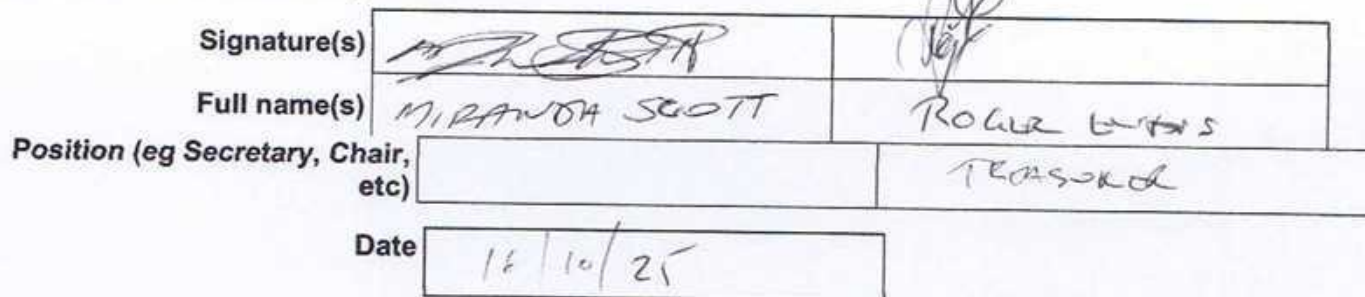 Signature(s)
Full name(s) MIRANDA SCOTT ROGER
Position (eg Secretary, Chair, TREASURER
etc)
Date /10/25